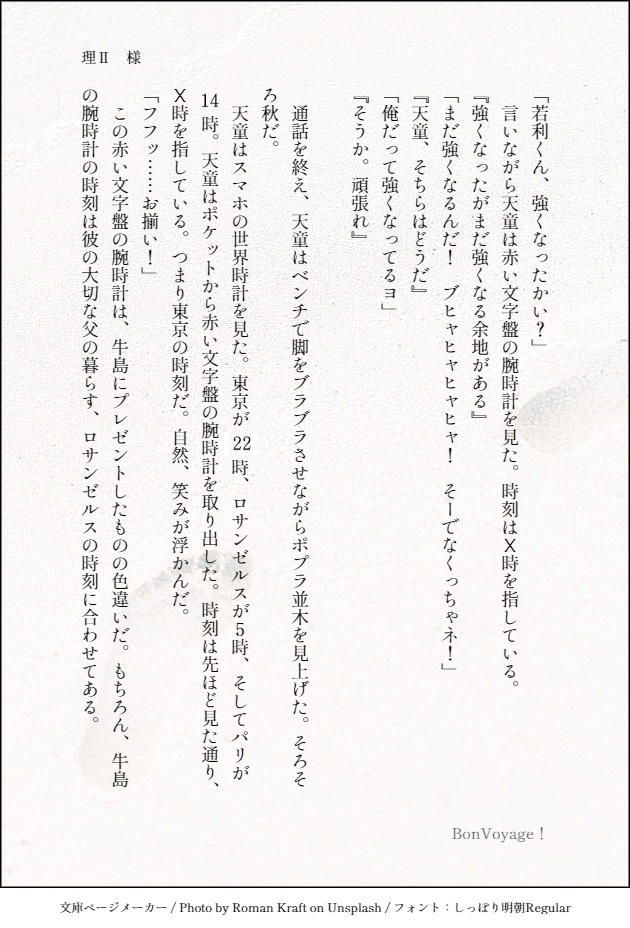 理Ⅱ 様
「若利くん、強くなったかい？」
　言いながら天童は赤い文字盤の腕時計を見た。時刻はX時を指している。
『強くなったがまだ強くなる余地がある』
「まだ強くなるんだ！　ブヒャヒャヒャヒャ！　そーでなくっちゃネ！」
『天童、そちらはどうだ』
「俺だって強くなってるヨ」
『そうか。頑張れ』
　通話を終え、天童はベンチで脚をブラブラさせながらポプラ並木を見上げた。そろそ
ろ秋だ。
　天童はスマホの世界時計を見た。東京が22時、ロサンゼルスが5時、そしてパリが
14時。天童はポケットから赤い文字盤の腕時計を取り出した。時刻は先ほど見た通り、
X時を指している。つまり東京の時刻だ。自然、笑みが浮かんだ。
「フフッ……お揃い！」
　この赤い文字盤の腕時計は、牛島にプレゼントしたものの色違いだ。もちろん、牛島
の腕時計の時刻は彼の大切な父の暮らす、ロサンゼルスの時刻に合わせてある。
BonVoyage！
文庫ページメーカー / Photo by Roman Kraft on Unsplash / フォント：しっぽり明朝Regular